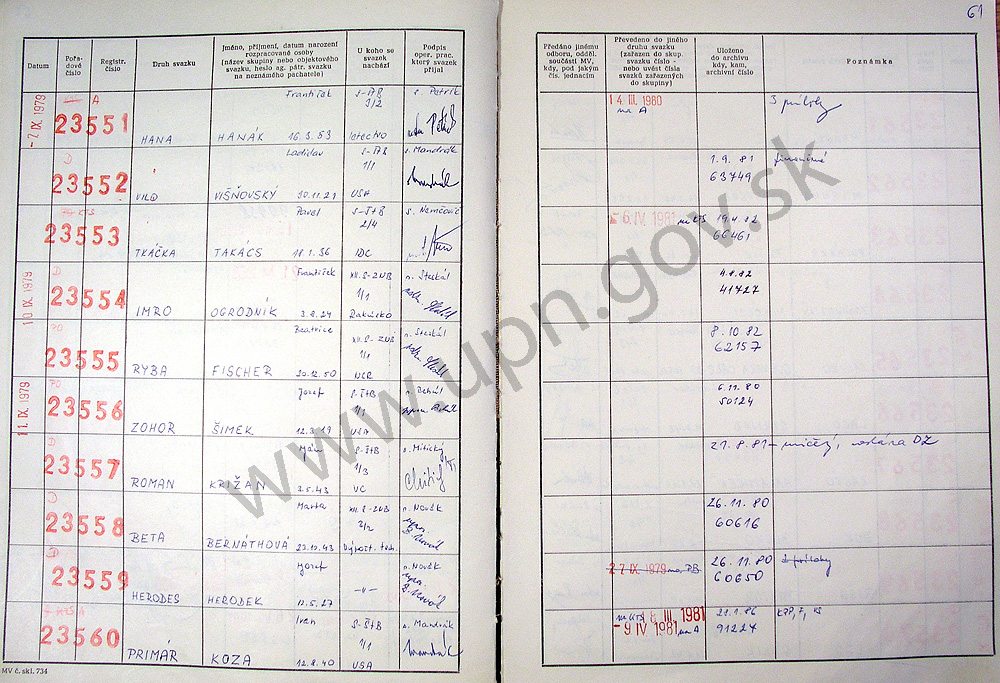 61
Datum
Pořa-
dové
číslo
Registr.
číslo
Druh svazku
Jméno, příjmení, datum narození
rozpracované osoby
(název skupiny nebo objektového
svazku, heslo ag. pátr. svazku
na neznámého pachatele)
U koho se
svazek
nachází
Podpis
oper. prac.
který svazek
přijal
Předáno jinému
odboru, odděl.
součásti MV,
kdy, pod jakým
čís. jednacím
Převedeno do jiného
druhu svazku
(zařazen do skup.
svazku číslo -
nebo uvést čísla
svazků zařazených
do skupiny)
Uloženo
do archivu
kdy, kam,
archivní číslo
Poznámka
-2 IX. 1979
A
23551
HANA
František
HANÁK 16.3.53
S-ŠTB
3/2
letectvo
s. Petrík
14. III. 1980
na A
3 prílohy
D
23552
VILO
Ladislav
VIŠŇOVSKÝ 30.11.21
S-ŠTB
1/1
USA
s. Mandrák
1. 9. 81
63749
KTS
23553
TKÁČKA
Pavel
TAKÁCS 18.1.56
S-ŠTB
2/4
IDC
s. Nemčovič
26. IV. 1981 na KTS
19.4.82
66461
10 IX. 1979
D
23554
IMRO
František
OGRODNÍK 3.8.24
XII. S-ZNB
1/1
Rakúsko
n. Stehál
4.8.82
41727
PO
23555
RYBA
Beatrice
FISCHER 30.12.50
XII. S-ZNB
1/1
NSR
n. Stehál
8.10.82
62157
11. IX. 1979
PO
23556
ZOHOR
Jozef
ŠIMEK 12.3.19
S-ŠTB
1/1
USA
6.11.80
50124
D
23557
ROMAN
Ján
KRIŽAN 2.5.43
S-ŠTB
1/3
VC
n. Mitický
21.8.81 – zničený, DZ
D
23558
BETA
Marta
BERNÁTHOVÁ 23.10.43
XII. S-ZNB
2/2
n. Novák
26. 11. 80
60616
D
23559
HERODES
Jozef
HERODEK 12.5.27
-"-
n. Novák
27 IX. 1979 na PB
26. 11. 80
60650
2 prílohy
KTS A
23560
PRIMÁR
Ivan
KOZA 12.8.40
S-ŠTB
1/1
USA
n. Mandrák
na KTS 18 III. 1981
-9 IV 1981 na A
22.1.86
91227
MV č. skl. 734
www.upn.gov.sk